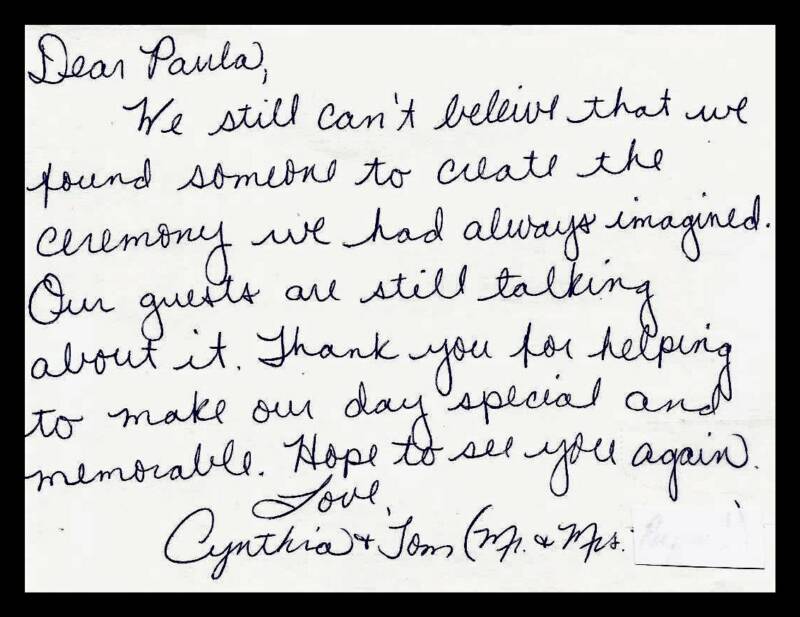 Dear Paula,
We still can't beleive that we
found someone to create the
ceremony we had always imagined.
Our guests are still talking
about it. Thank you for helping
to make our day special and
memorable. Hope to see you again.
Love,
Cynthia & Tom (Mr. & Mrs.